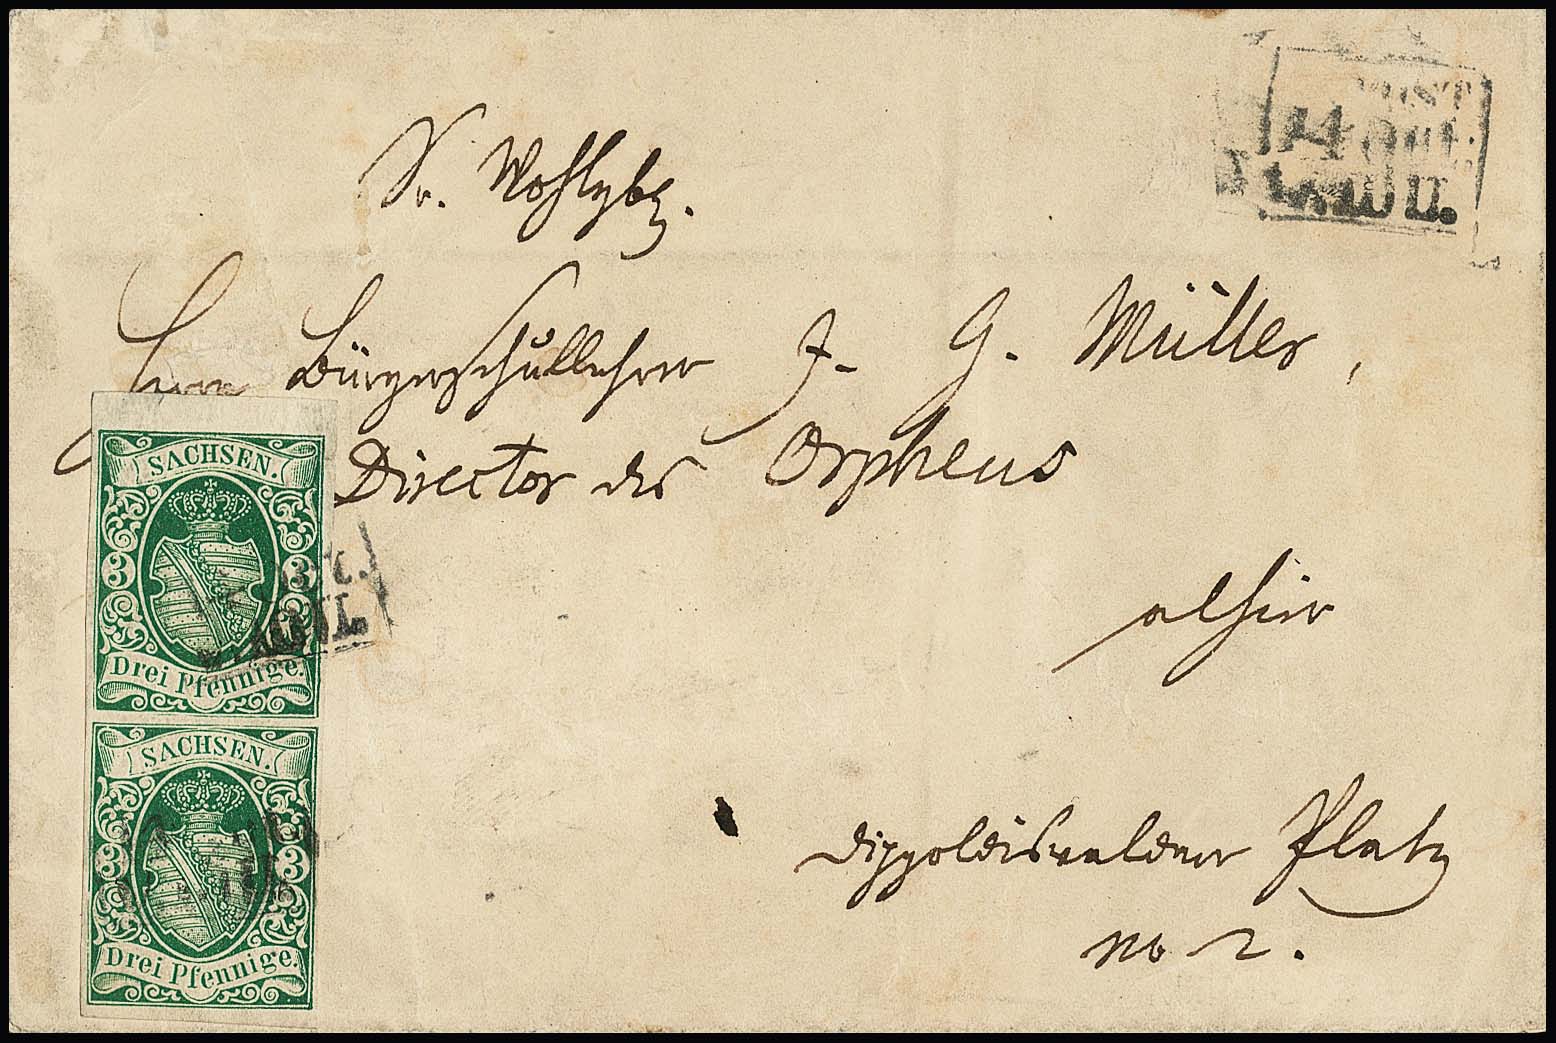 Sr. Wohlgb.
Herrn Bürgerschullehrer J. G. Müller,
Director des Orpheus
alhier
Dippoldiswalder Platz
No 2.
14
II.
SACHSEN.
3 3
Drei Pfennige.
II.
SACHSEN.
3 3
Drei Pfennige.